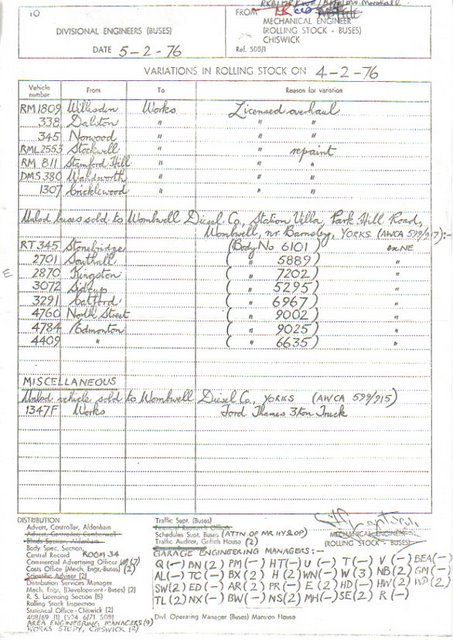 10
FROM
DIVISIONAL ENGINEERS (BUSES)
MECHANICAL ENGINEER
(ROLLING STOCK - BUSES)
CHISWICK
DATE 5-2-76
Ref. 508/1
VARIATIONS IN ROLLING STOCK ON 4-2-76
Vehicle number From To Reason for variation
RM 1809 Willesden Works Licensed overhaul
338 Dalston " "
345 Norwood " "
RML 2553 Stockwell " repaint
RM 811 Stamford Hill " "
DMS 380 Walworth " "
1307 Cricklewood " "
Unlicd buses sold to Wombwell Diesel Co., Station Villa, Park Hill Road,
Wombwell, nr Barnsley, YORKS (AWCA 599/917):-
RT 345 Stonebridge (Body No 6101) exNE
2701 Southall ( " 5889) "
E
2870 Kingston ( " 7202) "
3072 Sidcup ( " 5295) "
3291 Catford ( " 6967) "
4760 North Street ( " 9002) "
4784 Edmonton ( " 9025) "
4409 " ( " 6635) "
MISCELLANEOUS
Unlicd vehicle sold to Wombwell Diesel Co., YORKS (AWCA 599/915)
1347F Works Ford Thames 3ton Truck
DISTRIBUTION
Advert. Controller, Aldenham
Advert. Controller, Camberwell
Body Spec. Section,
Central Record ROOM 34
Commercial Advertising Officer
Cous Office (Mech. Engr.-Buses) (2)
Scientific Advisor (2)
Distribution Services Manager
Mech. Engr. (Development - Buses) (2)
R. S. Licensing Section (6)
Rolling Stock Inspection
Statistical Office - Chiswick (2)
AREA ENGINEERING MANAGERS (4)
WORKS STUDY, CHISWICK (2)
Traffic Supt. (Buses)
Schedules Supt. Buses (ATTN OF MR. HYSLOP)
Traffic Auditor, Griffith House (2)
MECHANICAL ENGINEER
(ROLLING STOCK - BUSES)
GARAGE ENGINEERING MANAGERS:-
Q(-) BN(2) PM(-) HT(-) U(-) T(-) V(-) BEA(-)
AL(-) TC(-) BX(2) H(2) WN(-) W(3) NB(2) GM(-)
SW(2) ED(-) AR(2) FR(-) E(2) HD(-) HW(2)
TL(2) NX(-) BW(-) NS(2) MH(-) SE(2) R(-)
Divl. Operating Manager (Buses) Mansion House